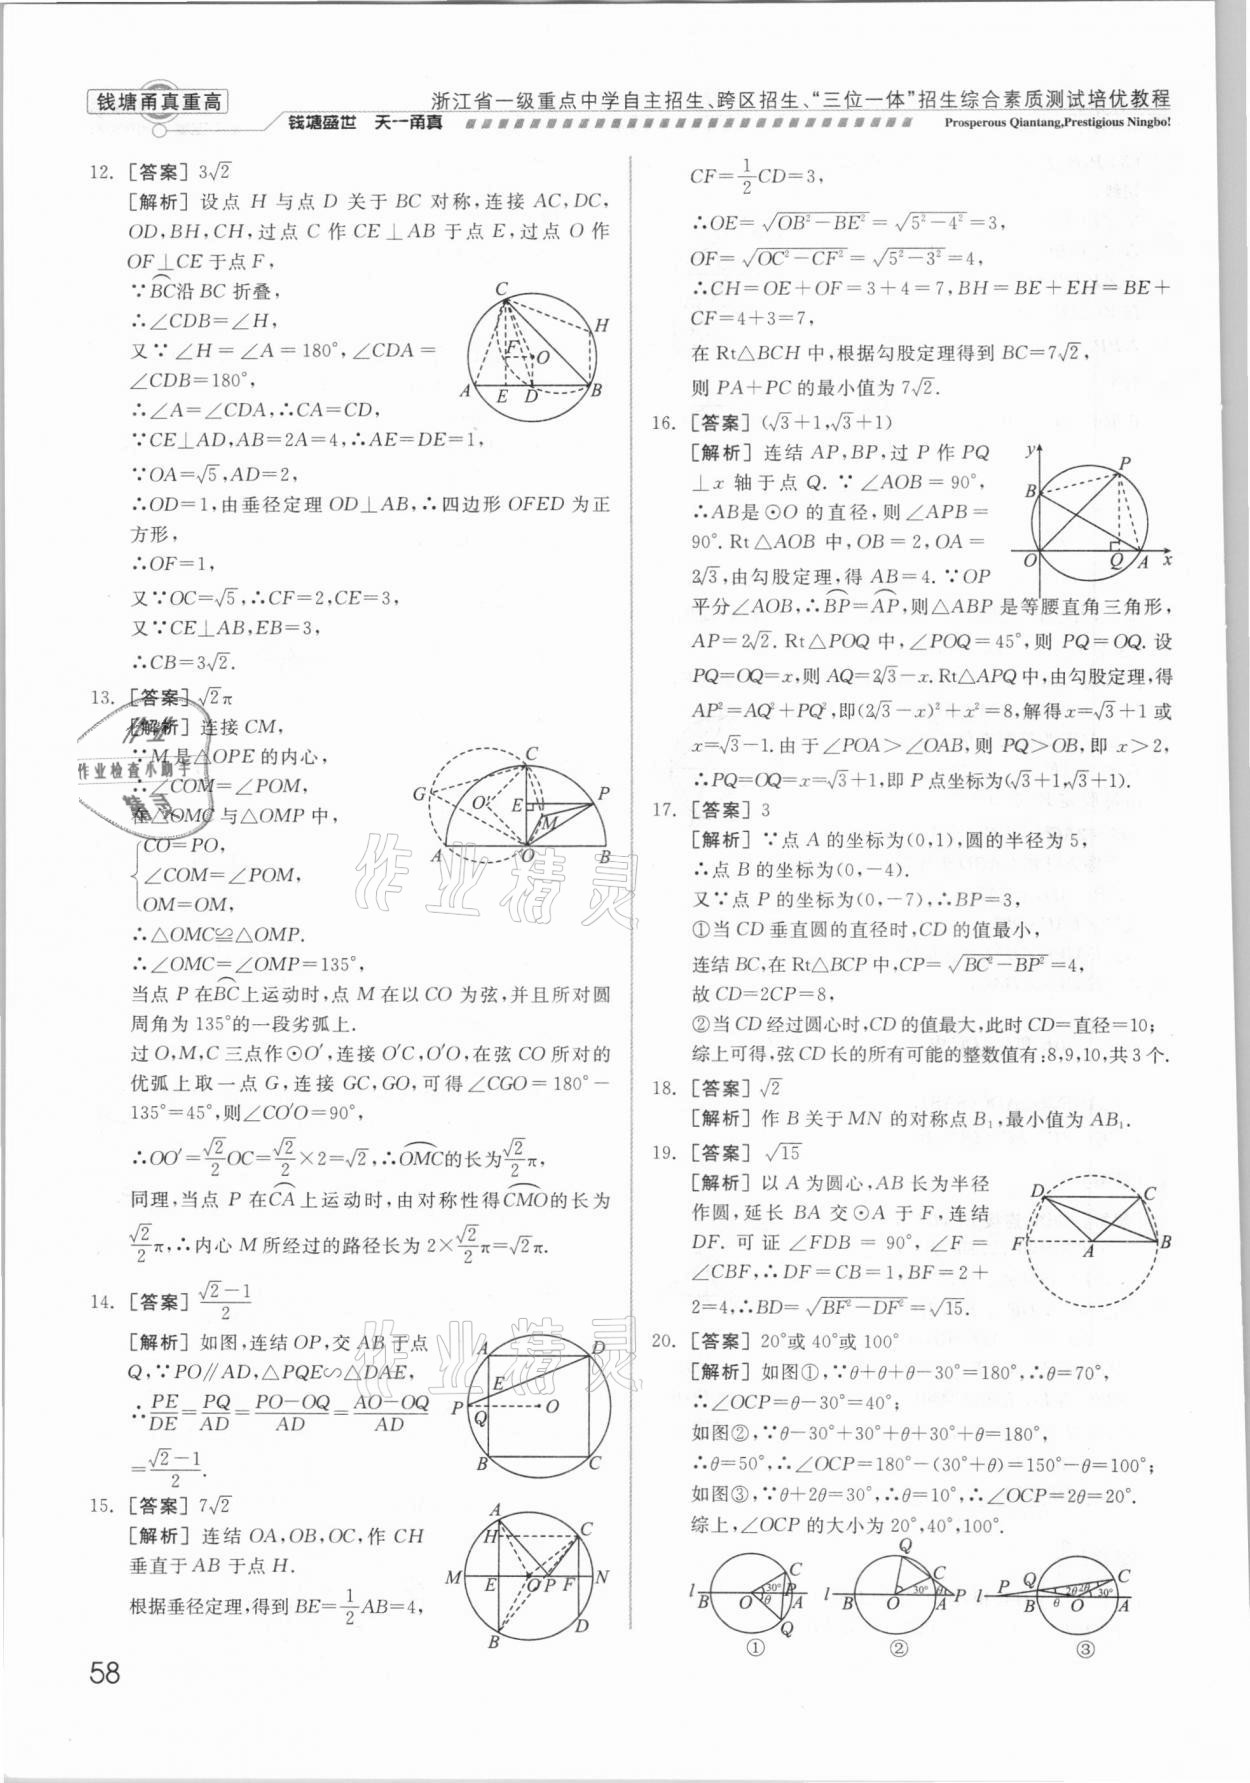 钱塘甬真重高
浙江省一级重点中学自主招生、跨区招生、“三位一体”招生综合素质测试培优教程
钱塘盛世 天一甬真
Prosperous Qiantang,Prestigious Ningbo!
12. [答案] 3√2
[解析] 设点 H 与点 D 关于 BC 对称,连接 AC,DC,
OD,BH,CH,过点 C 作 CE⊥AB 于点 E,过点 O 作
OF⊥CE 于点 F,
∵⌒BC沿 BC 折叠,
∴∠CDB=∠H,
又∵∠H=∠A=180°,∠CDA=
∠CDB=180°,
∴∠A=∠CDA,∴CA=CD,
∵CE⊥AD,AB=2A=4,∴AE=DE=1,
∵OA=√5,AD=2,
∴OD=1,由垂径定理 OD⊥AB,∴四边形 OFED 为正
方形,
∴OF=1,
又∵OC=√5,∴CF=2,CE=3,
又∵CE⊥AB,EB=3,
∴CB=3√2.
C
H
F
O
A
E
D
B
13. [答案] √2π
[解析] 连接 CM,
∵M 是△OPE 的内心,
∴∠COM=∠POM,
在△OMC 与△OMP 中,
CO=PO,
∠COM=∠POM,
OM=OM,
∴△OMC≌△OMP.
∴∠OMC=∠OMP=135°,
当点 P 在⌒BC上运动时,点 M 在以 CO 为弦,并且所对圆
周角为 135°的一段劣弧上.
过 O,M,C 三点作⊙O′,连接 O′C,O′O,在弦 CO 所对的
优弧上取一点 G,连接 GC,GO,可得∠CGO=180°-
135°=45°,则∠CO′O=90°,
∴OO′=√2/2 OC=√2/2×2=√2,∴⌒OMC的长为√2/2 π,
同理,当点 P 在⌒CA上运动时,由对称性得⌒CMO的长为
√2/2 π,∴内心 M 所经过的路径长为 2×√2/2 π=√2π.
C
G
O′
E
P
M
A
O
B
14. [答案] (√2-1)/2
[解析] 如图,连结 OP,交 AB 于点
Q,∵PO∥AD,△PQE∽△DAE,
∴PE/DE=PQ/AD=(PO-OQ)/AD=(AO-OQ)/AD
=(√2-1)/2.
A
D
E
P
Q
O
B
C
15. [答案] 7√2
[解析] 连结 OA,OB,OC,作 CH
垂直于 AB 于点 H.
根据垂径定理,得到 BE=1/2 AB=4,
A
H
C
M
E
O
P
F
N
D
B
58
CF=1/2 CD=3,
∴OE=√(OB²-BE²)=√(5²-4²)=3,
OF=√(OC²-CF²)=√(5²-3²)=4,
∴CH=OE+OF=3+4=7,BH=BE+EH=BE+
CF=4+3=7,
在 Rt△BCH 中,根据勾股定理得到 BC=7√2,
则 PA+PC 的最小值为 7√2.
16. [答案] (√3+1,√3+1)
[解析] 连结 AP,BP,过 P 作 PQ
⊥x 轴于点 Q. ∵∠AOB=90°,
∴AB是⊙O 的直径,则∠APB=
90°. Rt△AOB 中,OB=2,OA=
2√3,由勾股定理,得 AB=4. ∵OP
平分∠AOB,∴⌒BP=⌒AP,则△ABP 是等腰直角三角形,
AP=2√2. Rt△POQ 中,∠POQ=45°,则 PQ=OQ. 设
PQ=OQ=x,则 AQ=2√3-x. Rt△APQ 中,由勾股定理,得
AP²=AQ²+PQ²,即(2√3-x)²+x²=8,解得x=√3+1或
x=√3-1. 由于∠POA>∠OAB,则 PQ>OB,即 x>2,
∴PQ=OQ=x=√3+1,即 P 点坐标为(√3+1,√3+1).
y
P
B
O
Q
A
x
17. [答案] 3
[解析] ∵点 A 的坐标为(0,1),圆的半径为5,
∴点 B 的坐标为(0,-4).
又∵点 P 的坐标为(0,-7),∴BP=3,
①当 CD 垂直圆的直径时,CD 的值最小,
连结 BC,在 Rt△BCP 中,CP=√(BC²-BP²)=4,
故 CD=2CP=8,
②当 CD 经过圆心时,CD 的值最大,此时 CD=直径=10;
综上可得,弦 CD 长的所有可能的整数值有:8,9,10,共 3 个.
18. [答案] √2
[解析] 作 B 关于 MN 的对称点 B₁,最小值为 AB₁.
19. [答案] √15
[解析] 以 A 为圆心,AB 长为半径
作圆,延长 BA 交⊙A 于 F,连结
DF. 可证∠FDB=90°,∠F=
∠CBF,∴DF=CB=1,BF=2+
2=4,∴BD=√(BF²-DF²)=√15.
D
C
F
A
B
20. [答案] 20°或 40°或 100°
[解析] 如图①,∵θ+θ+θ-30°=180°,∴θ=70°,
∴∠OCP=θ-30°=40°;
如图②,∵θ-30°+30°+θ+30°+θ=180°,
∴θ=50°,∴∠OCP=180°-(30°+θ)=150°-θ=100°;
如图③,∵θ+2θ=30°,∴θ=10°,∴∠OCP=2θ=20°.
综上,∠OCP 的大小为 20°,40°,100°.
l
B
O
30°
θ
C
P
A
Q
①
l
B
O
Q
C
30°
θ
A
P
②
l
P
Q
B
θ
2θ
2θ
O
30°
C
A
③
作业
作业检查小助手
精灵
作业精灵
作业精灵